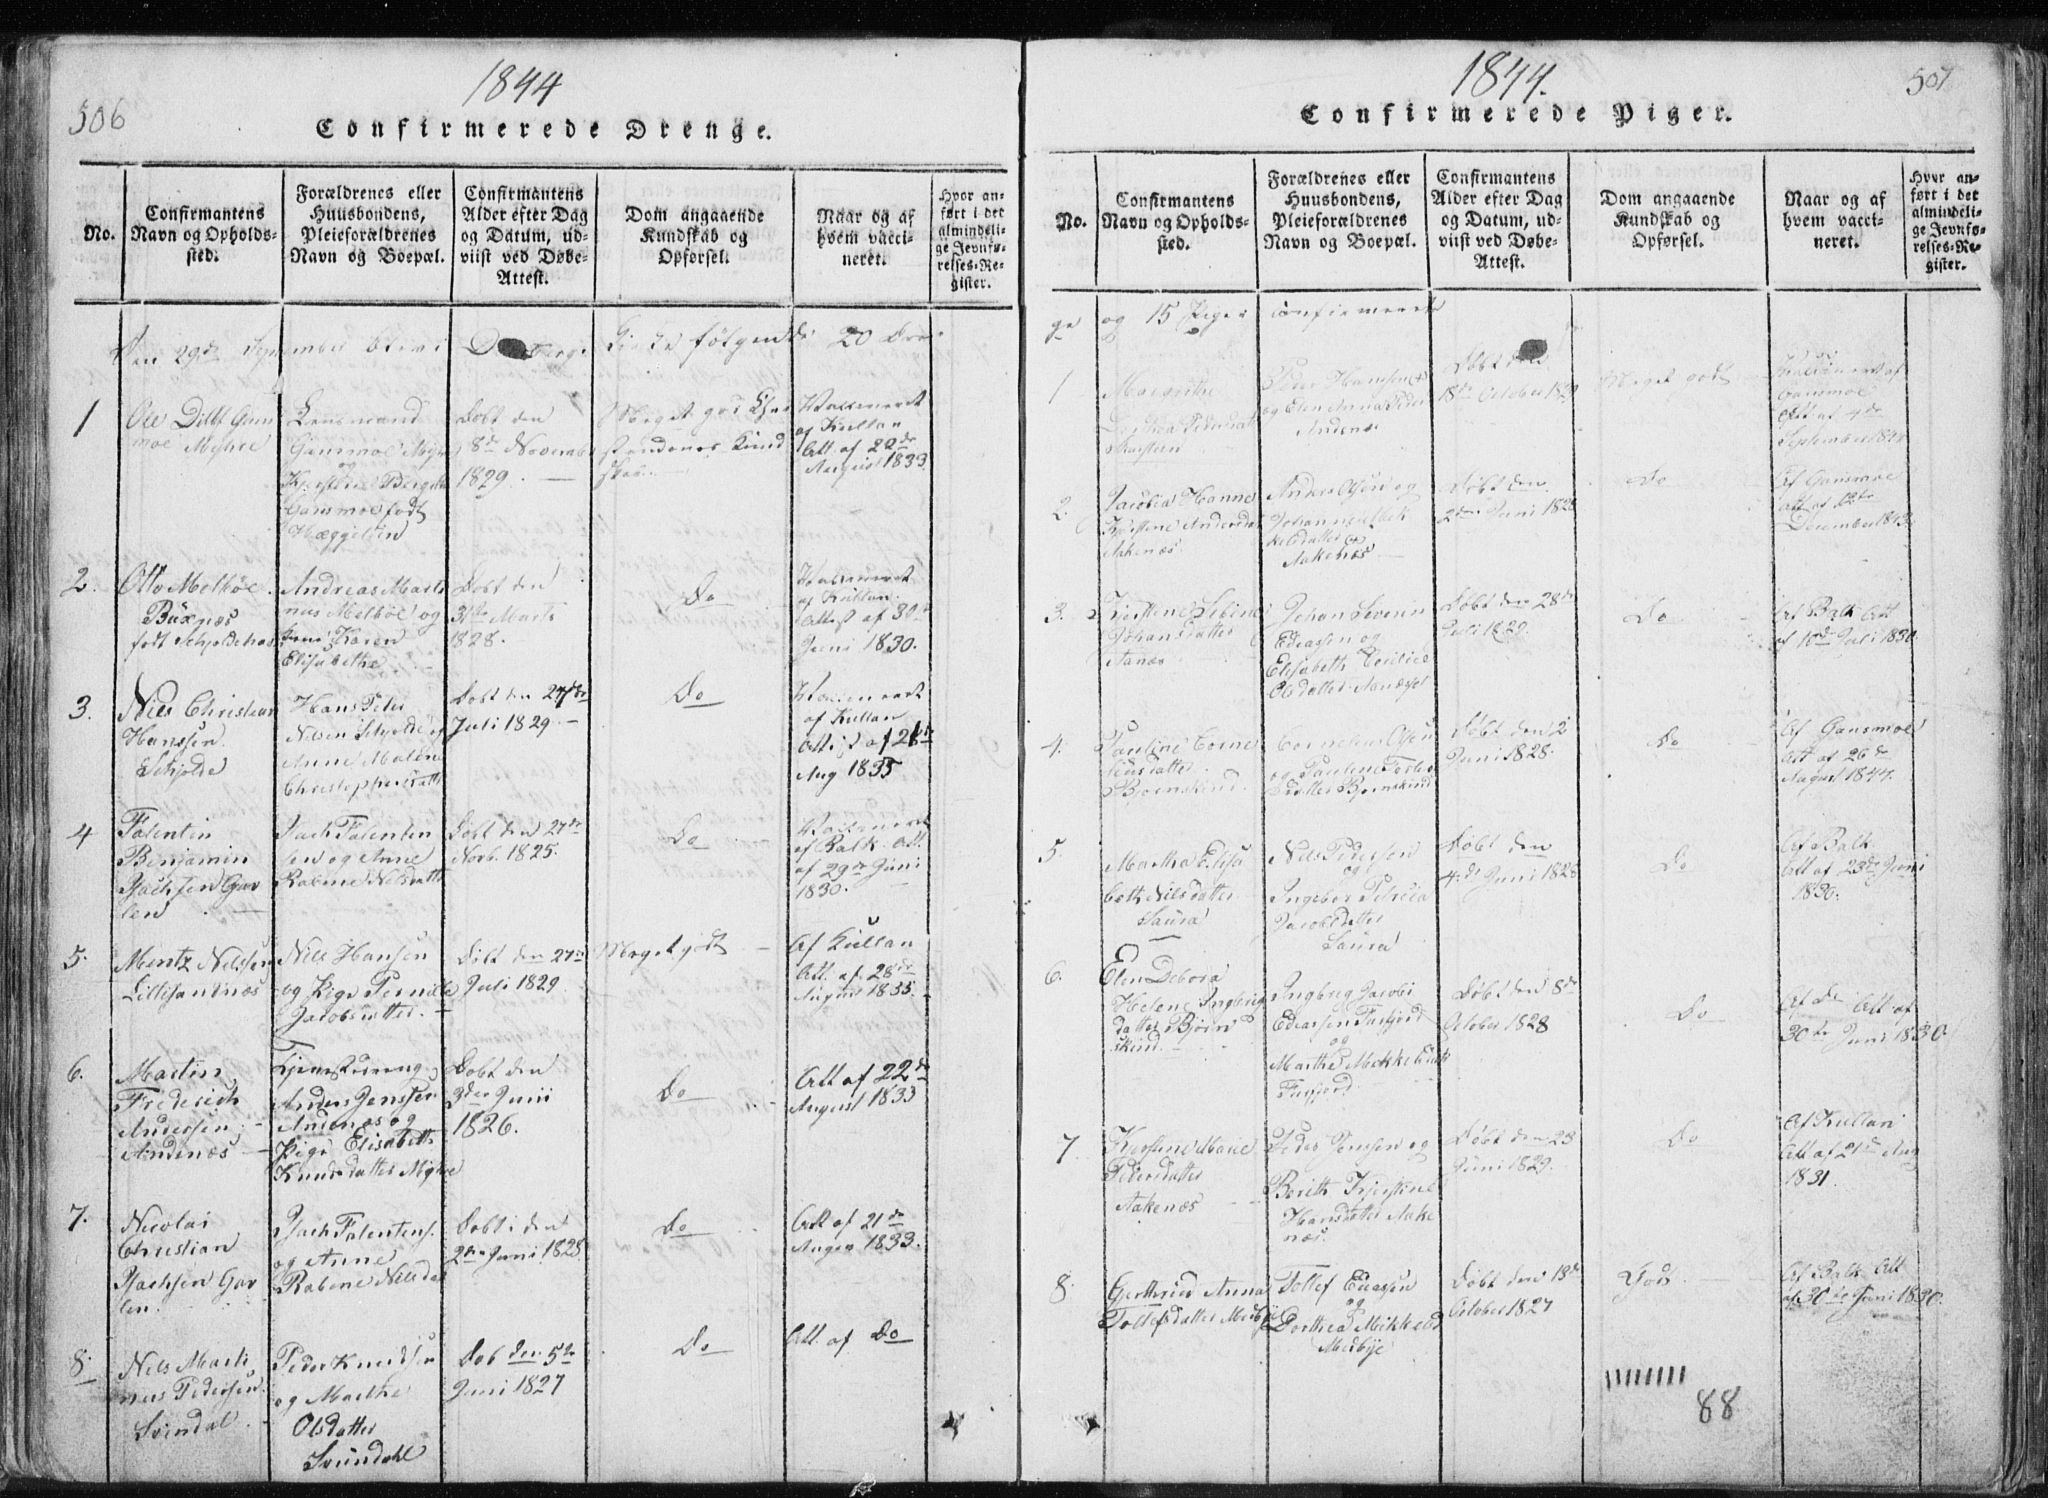 506
1844
Confirmerede Drenge.
No.
Confirmantens
Navn og Opholds-
sted.
Forældrenes eller
Huusbondens,
Pleieforældrenes
Navn og Boepæl.
Confirmantens
Alder efter Dag
og Datum, ud-
viist ved Døbe-
Attest.
Dom angaaende
Kundskab og
Opførsel.
Naar og af
hvem vacci-
neret.
Hvor an-
ført i det
almindeli-
ge Jevnfø-
relses-Re-
gister.
Den 29de September blev i
Kirke følgende 20 Dren
1
Ole Ditlef Gans
moe Myhre
Lensmand
Gansmoe Myhre
og
Gansmoe født
Hæggelsen
Døbt den
8de Novemb
1829.
Meget god Chri
stendoms Kund
skab.
Vaksineret
af Kullan
Att. af 22de
August 1833
2.
Otto Melbøe
Büxnæs
født Schjoldehas
Andreas Marti
nus Melbøe og
Karen
Elisabethe
Døbt den
31te Marts
1828.
Do
af Kullan.
Attest af 30te
Juni 1830.
3.
Niels Christian
Hanssen
Schjolde
Hans Peter
Nilsen Schjolde og
Anne Malene
Christophersdatter
Døbt den 27de
Juli 1829.
Do
Vaksineret
af Kullan
Attest af 28de
Aug 1835
4
Falentin
Benjamin
Isachsen Gar
len
Isach Falentin
sen og Anne
Rabene Nilsdatter
Døbt den 27de
Novb. 1825.
Do
Vaksineret
af Balk. Att.
af 29de Juni
1830.
5.
Mentz Nilssen
Lillesandnæs
Nils Hansen
og Pige Pernille
Jacobsdatter.
Døbt den 27de
Juli 1829
Meget godt
Af Kullan
Att. af 28de
August 1835.
6.
Martin
Frederich
Andersen
Andenæs
Tjenestedreng
Anders Jenssen
Andenæs og
Pige Elisabeth
Knudsdatter Myhre
Døbt den
3de Junii
1826.
Do
Att af 22de
August 1833
7.
Nicolai
Christian
Isachsen Gar
len.
Isach Falentens.
og Anne
Rabene Nilsdat
Døbt den
2den Juni 1828
Do
Att af 21de
August 1833.
8.
Nils Marti
nus Pedersen
Svendal
Peder Knudsen
og Marthe
Olsdatter
Svendahl
Døb den 5te
Juni 1827
Do
Att. af Do
1844.
507
Confirmerede Piger.
No.
Confirmantens
Navn og Opholds-
sted.
Forældrenes eller
Huusbondens,
Pleieforældrenes
Navn og Boepæl.
Confirmantens
Alder efter Dag
og Datum, ud-
viist ved Døbe-
Attest.
Dom angaaende
Kundskab og
Opførsel.
Naar og af
hvem vacci-
neret.
Hvor an-
ført i det
almindeli-
ge Jevnfø-
relses-Re-
gister.
ge og 15 Piger confirmerede
1
Margrethe
Dorthea Pedersdatter
Peder Hanssen
og Elen Anna Peders
Andenæs
Døbt den
18de October 1829
Meget godt
Vaksineret af
Gansmoe
Att af 4de
September 1844
2.
Jacobia Hanne
Kjerstine Andersdat
Aakenæs
Anders Olsen og
Johanna Mik
kelsdatter
Aakenæs
Døbt den
2den Juni 1828
Do
Af Gansmoe
Att af 12te
December 1843
3.
Kjerstine Sebine
Johansdatter
Aanæs
Johan Severin
Edeassen og
Elisabeth Cecilie
Olsdatter Aanæsset
Døbt den 28de
Juli 1829.
Do
Af Balk Att
af 15de Juli 1830.
4.
Pauline Corne
liusdatter
Bjørnskind
Cornelius Olsen
og Paulene Tosten
datter Bjørnskind
Døbt den 2
Juni 1828.
Do
Af Gansmoe
Att af 26de
August 1844.
5.
Martha Elisa
beth Nilsdatter
Saura
Nels Pedersen
og
Ingebor Petricia
Jacobsdatter
Saura
Døbt den
4de Juni 1828
Do
Af Balk
Att af 23de Juni
1830.
6.
Elen Debora
Helene Ingbrig
datter Bjørn
skind.
Ingbrig Jacobi
Edeassen Fusfjord
og
Marthe Mikkelsdt
Fusfjord.
Døbt den 8de
October 1828
Do
Af Do Att af
30te Juni 1830.
7
Kjerstine Marie
Pedersdatter
Aakenæs
Peder Jenssen og
Berith Kjerstine
Hansdatter Aake
næs.
Døbt den 23
Juni 1829.
Do
Af Kullan
Att af 21de Aug
1831.
8.
Gerthrud Anna
Tollefsdatter Medbye
Tollef Edeassen
og
Dorthea Mikkelsd
Medbye
Døbt den 13de
October 1827
Godt
Af Balk Att
af 30te Juni 1830.
88